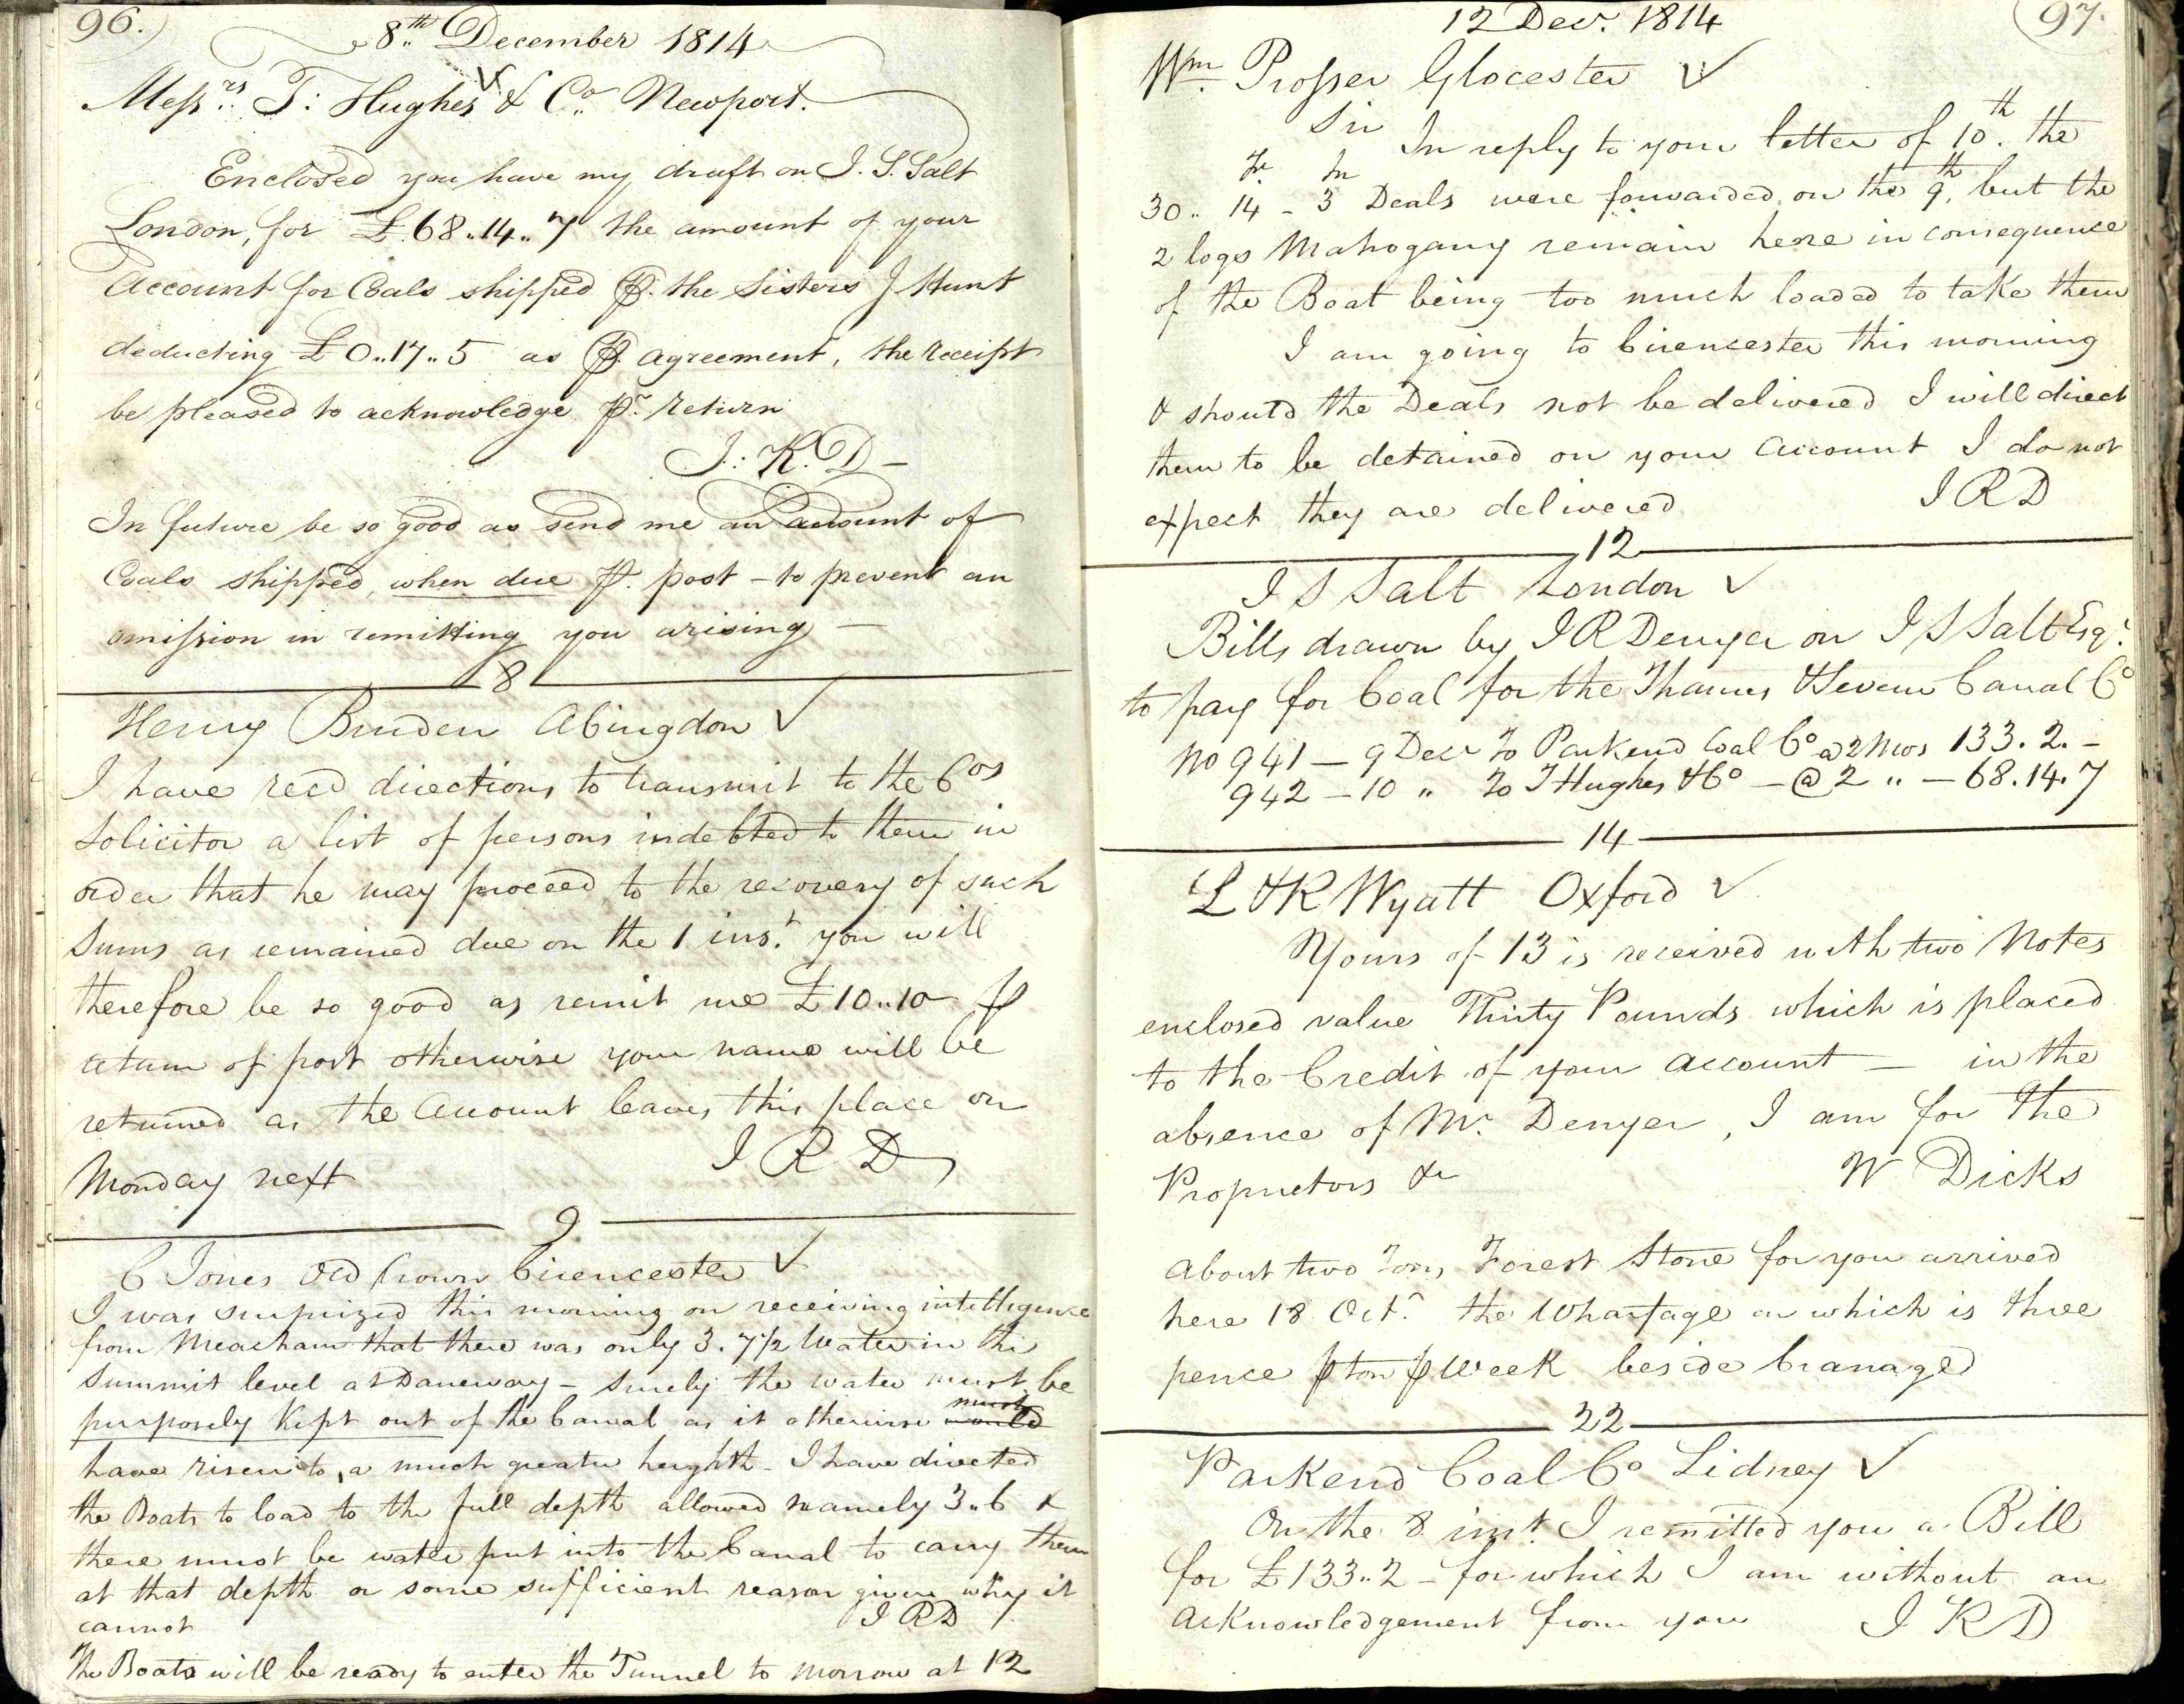 96.
8th December 1814
Messrs. T: Hughes & Co. Newport.
Enclosed you have my draft on J. S. Salt
London, for £68..14..7 the amount of your
Account for Coals shipped P. the Sisters J Hunt
deducting £0..17..5 as P. agreement, the receipt
be pleased to acknowledge Pr. return
J: R. D—
In future be so good as send me an account of
Coals shipped, when due P. post – to prevent an
omission in remitting you arising —
8
Henry Burden Abingdon ✓
I have recd directions to transmit to the Cos
Solicitor a list of persons indebted to them in
order that he may proceed to the recovery of such
Sums as remained due on the 1 inst. you will
therefore be so good as remit me £10..10 P
return of post otherwise your name will be
returned as the Account leaves this place on
Monday next
I R D
9.
C Jones Old Crown Cirencester ✓
I was surprized this morning on receiving intelligence
from Meacham that there was only 3. 7 1/2 Water in the
Summit level at Daneway – surely the water must be
purposely kept out of the Canal as it otherwise would must
have risen to a much greater heighth – I have directed
the Boats to load to the full depth allowed namely 3..6 &
there must be water put into the Canal to carry them
at that depth or some sufficient reason given why it
cannot
I R D
The Boats will be ready to enter the Tunnel to morrow at 12
97.
12 Decr. 1814
Wm. Prosser Glocester ✓
Sir In reply to your letter of 10th. the
30.. 14 Ft – 3 In Deals were forwarded on the 9th, but the
2 logs Mahogany remain here in consequence
of the Boat being too much loaded to take them
I am going to Cirencester this morning
& should the Deals not be delivered I will direct
them to be detained on your Account I do not
expect they are delivered
I R D
12
I S Salt London ✓
Bills drawn by I R Denyer on I S Salt Esqr.
to pay for Coal for the Thames & Severn Canal Co
No 941 — 9 Decr To Parkend Coal Co @ 2 Mos 133. 2. –
942 – 10 " To T Hughes & Co — @ 2 " — 68. 14. 7
14
L & R Wyatt Oxford ✓
Yours of 13 is received with two Notes
enclosed value Thirty Pounds which is placed
to the Credit of your Account — in the
absence of Mr. Denyer, I am for the
Proprietors &c
W Dicks
About two Tons Forest Stone for you arrived
here 18 Octr. the Wharfage on which is three
pence P ton P Week beside Cranage
22
Parkend Coal Co Lidney ✓
On the 8 inst. I remitted you a Bill
for £133..2 – for which I am without an
Acknowledgement from you
I R D